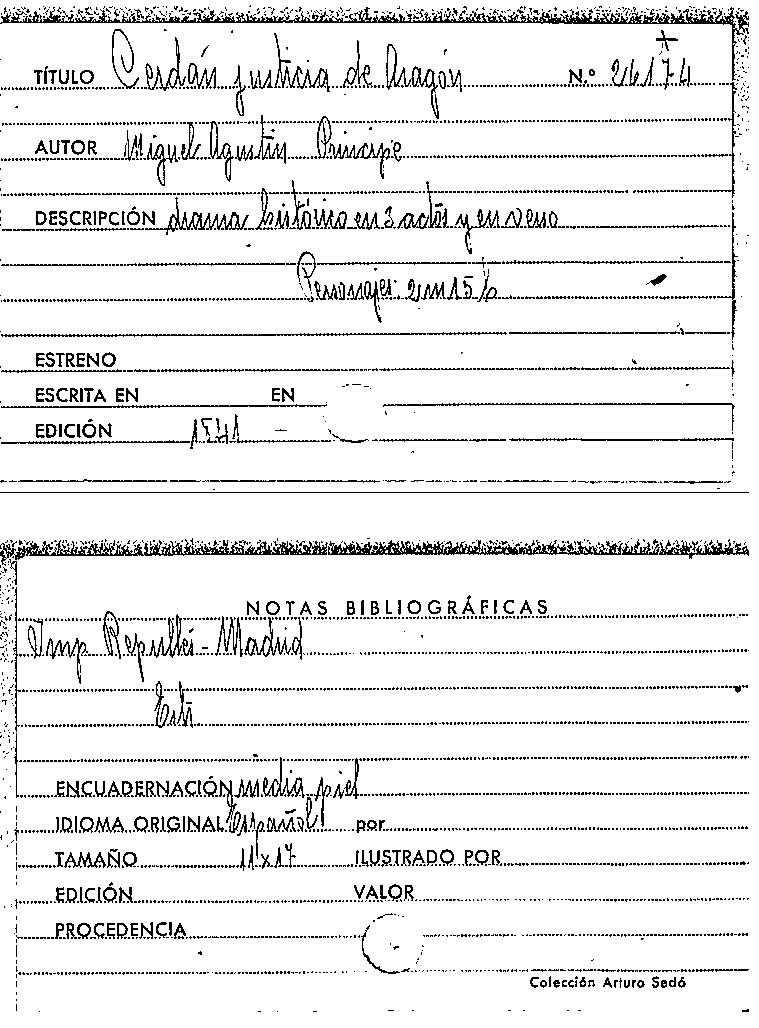 TÍTULO Cerdán justicia de Aragón N.º 26174
AUTOR Miguel Agustín Príncipe
DESCRIPCIÓN drama histórico en 3 actos y en verso
Personajes: 2 m 15 h
ESTRENO
ESCRITA EN EN
EDICIÓN 1841 -
NOTAS BIBLIOGRÁFICAS
Imp Repullés - Madrid
ENCUADERNACIÓN media piel
IDIOMA ORIGINAL Español por
TAMAÑO 11 x 17 ILUSTRADO POR
EDICIÓN VALOR
PROCEDENCIA
Colección Arturo Sedó